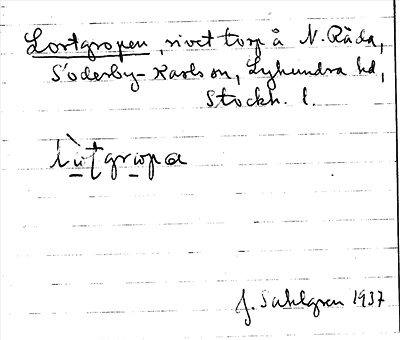 Lortgropen, rivet torp å N. Råda,
Söderby-Karlson, Lyhundra hd,
Stockh. l.
J. Sahlgren 1937